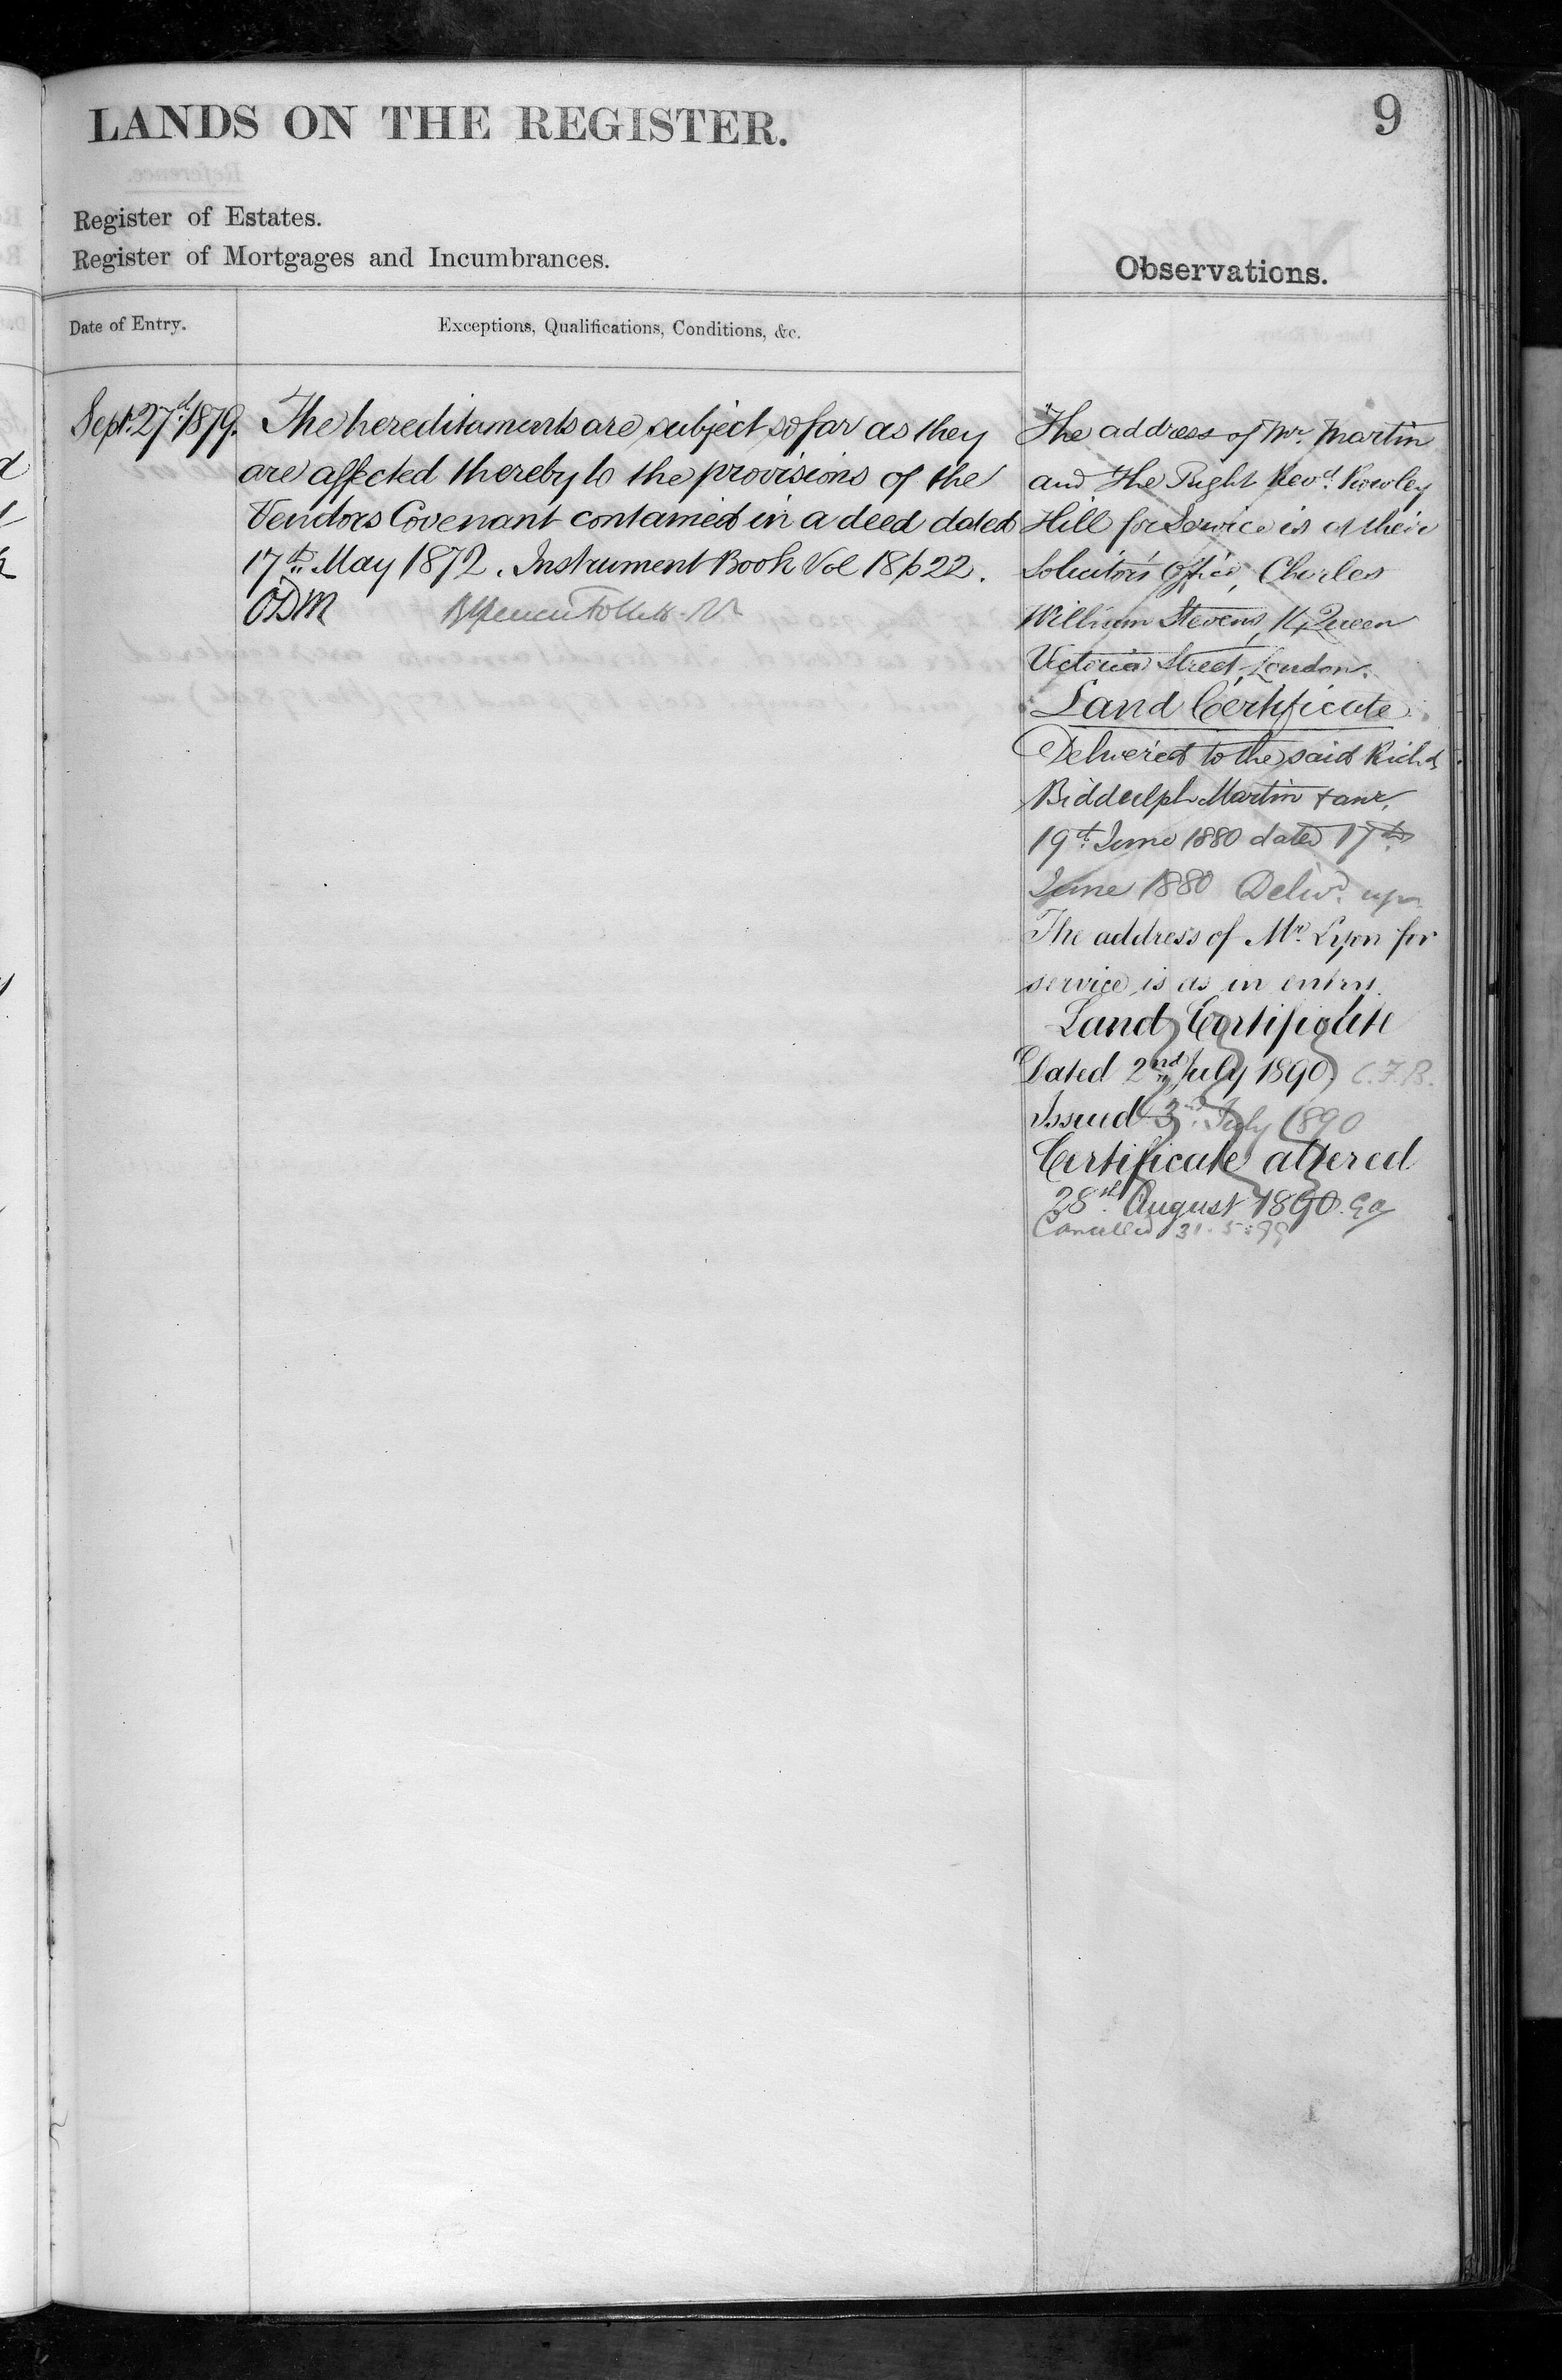 LANDS ON THE REGISTER.
9
Register of Estates.
Register of Mortgages and Incumbrances.
Observations.
Date of Entry.
Exceptions, Qualifications, Conditions, &c.
Sept. 27th 1879.
The hereditaments are subject so far as they
are affected thereby to the provisions of the
Vendors Covenant contained in a deed dated
17th May 1872. Instrument Book Vol 18 p 22.
ODM
The address of Mr. Martin
and the Right Revd. Rowley
Hill for Service is at their
Solicitor's Office, Charles
William Stevens, 14 Queen
Victoria Street, London.
Land Certificate
Delivered to the said Richd.
Biddulph Martin + anr.
19th June 1880 dated 17th
June 1880 Delivd. up
The address of Mr. Lyon for
service is as in entry.
Land Certificate
Dated 2nd July 1890 C.F.B.
Issued 3rd July 1890
Certificate altered
28th August 1890.
Cancelled 31.5.99